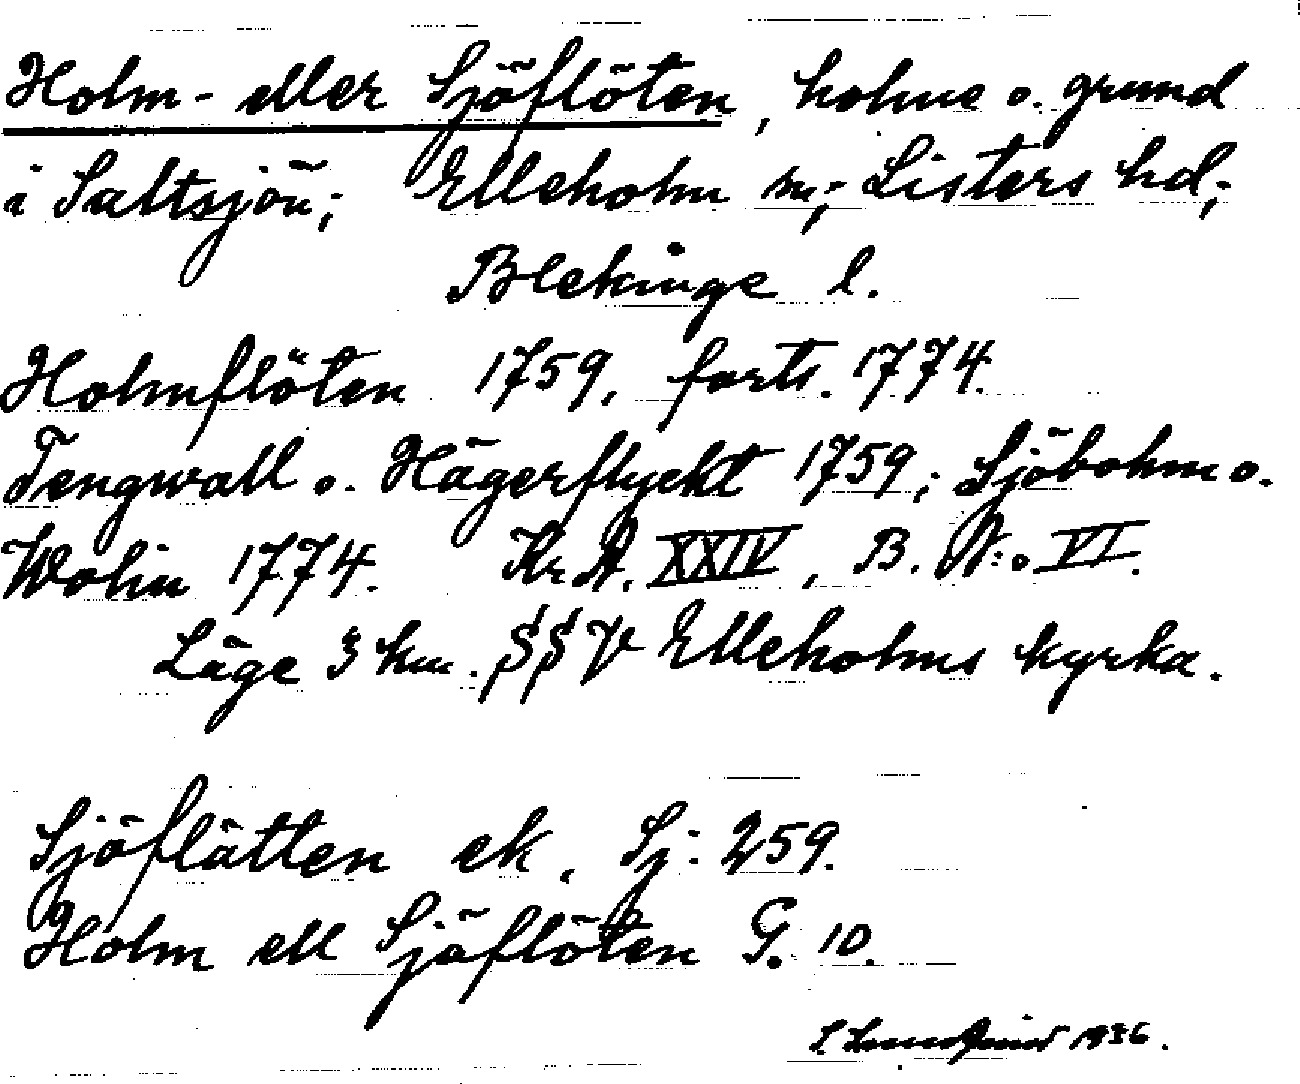 Holm- eller Sjöflöten, holme o. grund
i Saltsjön; Elleholm sn; Listers hd;
Blekinge l.
Holmflöten 1759, forts. 1774.
Tengwall o. Hägerflyckt 1759; Sjöbohm o.
Wohin 1774. Kr. A. XXIV, B. N:o VI.
Läge 3 km. SSV Elleholms kyrka.
Sjöflätten ek. Sj: 259.
Holm ell Sjöflöten G. 10.
1936.